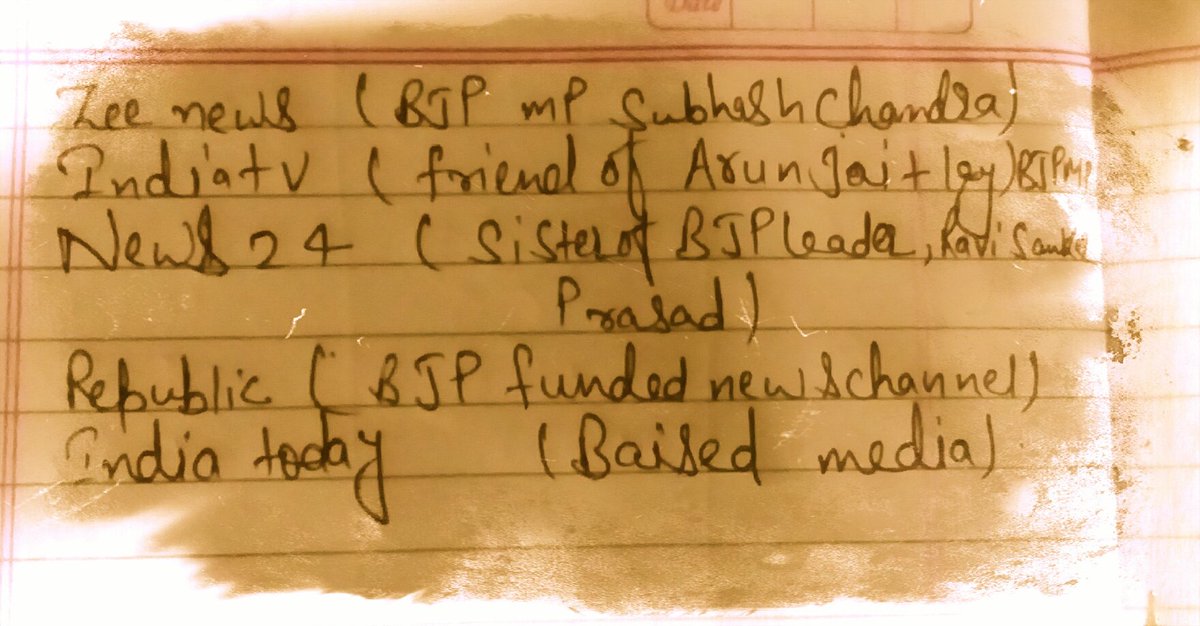 Date
Zee news (BJP MP Subhash Chandra)
India tv (friend of Arun Jaitley) BJP MP
News 24 (Sister of BJP leader, Ravi Sanke
Prasad)
Republic (BJP funded news channel)
India today (Baised media)